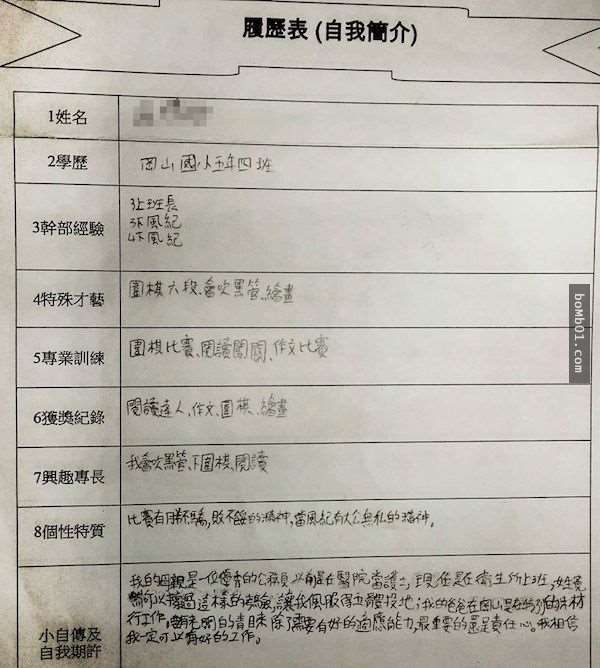 履歷表 (自我簡介)
1姓名
2學歷
岡山國小五年四班
3幹部經驗
3上班長
3下風紀
4下風紀
4特殊才藝
圍棋六段、會吹黑管、繪畫
5專業訓練
圍棋比賽、閱讀闖關、作文比賽
6獲獎紀錄
閱讀達人、作文、圍棋、繪畫
7興趣專長
我會吹黑管、下圍棋、閱讀
8個性特質
比賽有勝不驕,敗不餒的精神,當風紀有大公無私的精神。
小自傳及
自我期許
我的母親是一位優秀的公務員,以前是在醫院當護士,現在是在衛生所上班,她竟
然可以接過這樣的考驗,讓我佩服得五體投地;我的爸爸在岡山
行工作,除了需要有好的適應能力,最重要的還是責任心。我相信
我一定可以有好的工作。
boMb01.com